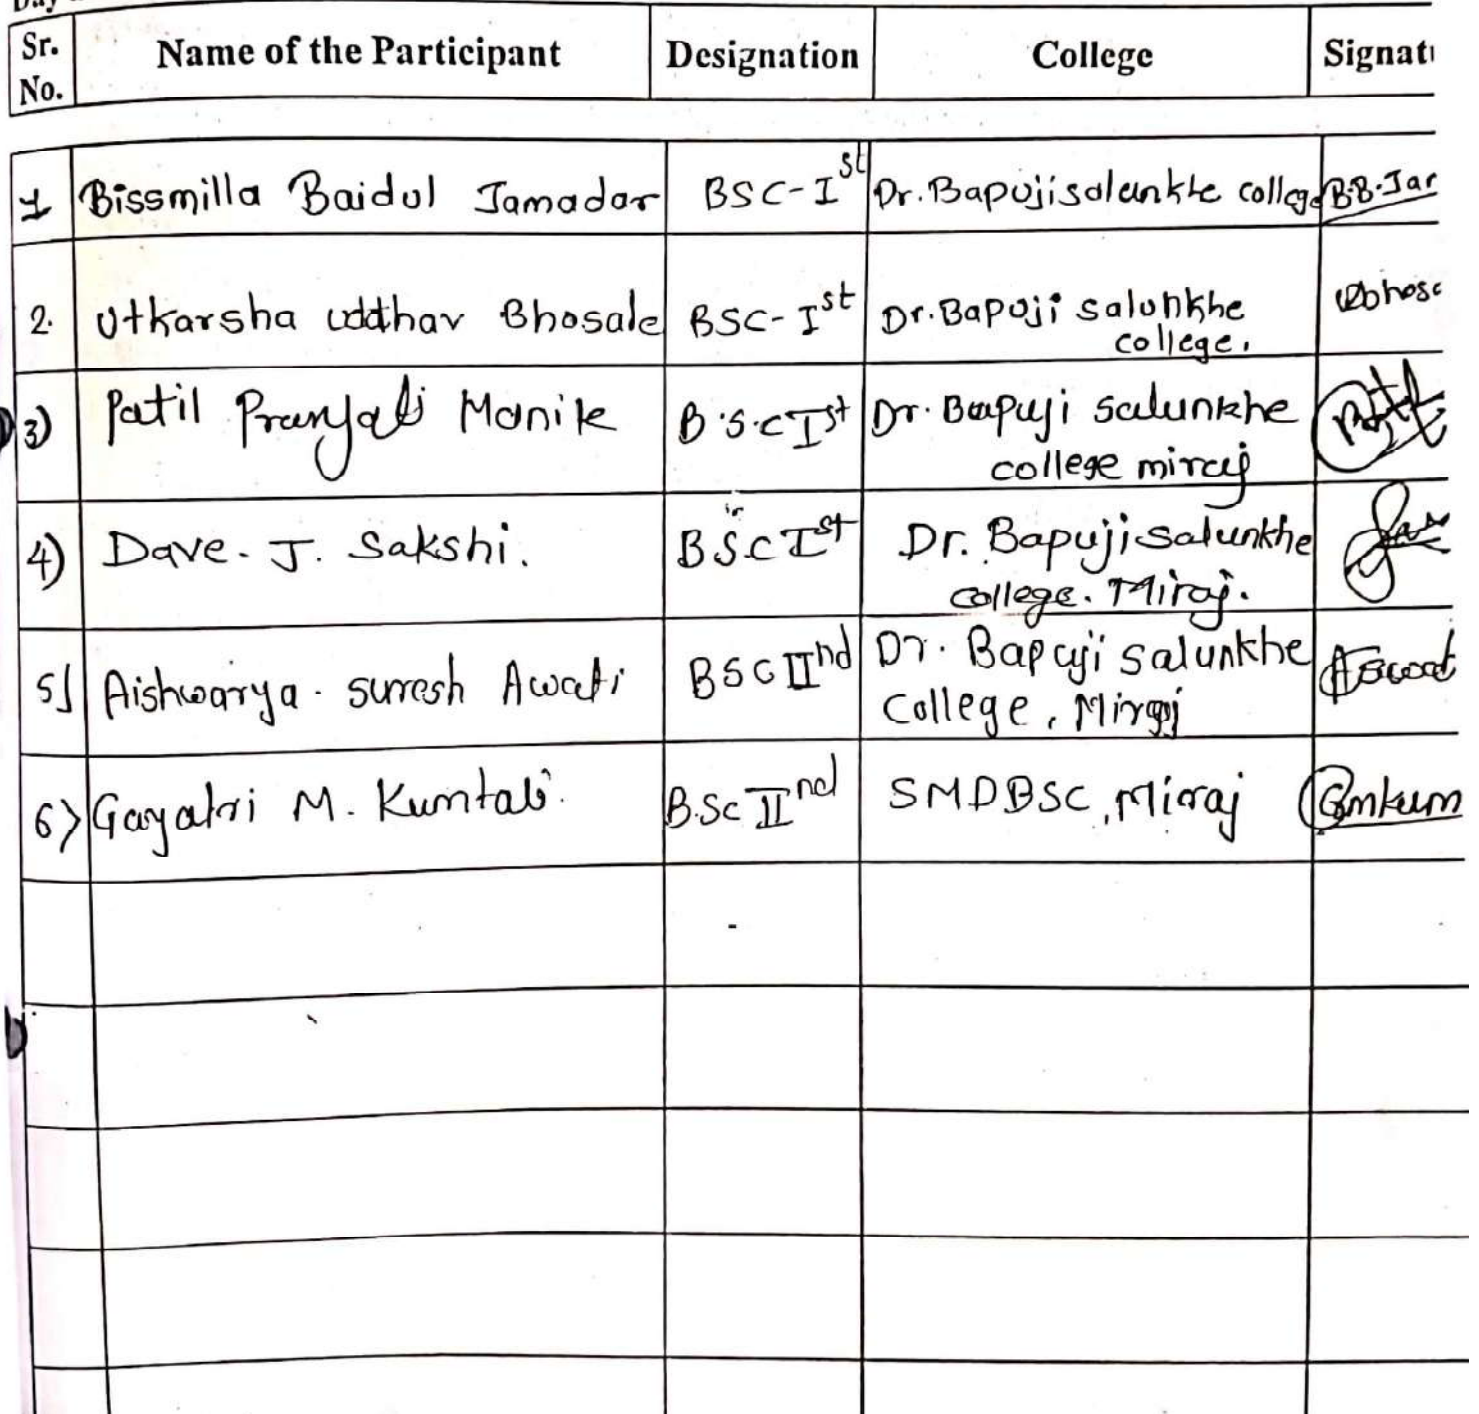 Sr. No. Name of the Participant Designation College
1 Bissmilla Baidul Jamadar BSC-Ist Dr.Bapujisalunkhe college B.B.Jar
2. Utkarsha Uddhav Bhosale BSC-Ist Dr.Bapuji salunkhe
college.
3) Patil Pranjali Manik B.S.C Ist Dr. Bapuji salunkhe
college miraj
4) Dave. J. Sakshi. BSC Ist Dr. Bapuji salunkhe
college. Miraj.
5) Aishwarya. suresh Awati BSC IInd Dr. Bapuji Salunkhe
College, Miraj
6) Gayatri M. Kumtali B.Sc IInd SMDBSC, Miraj Gmkum